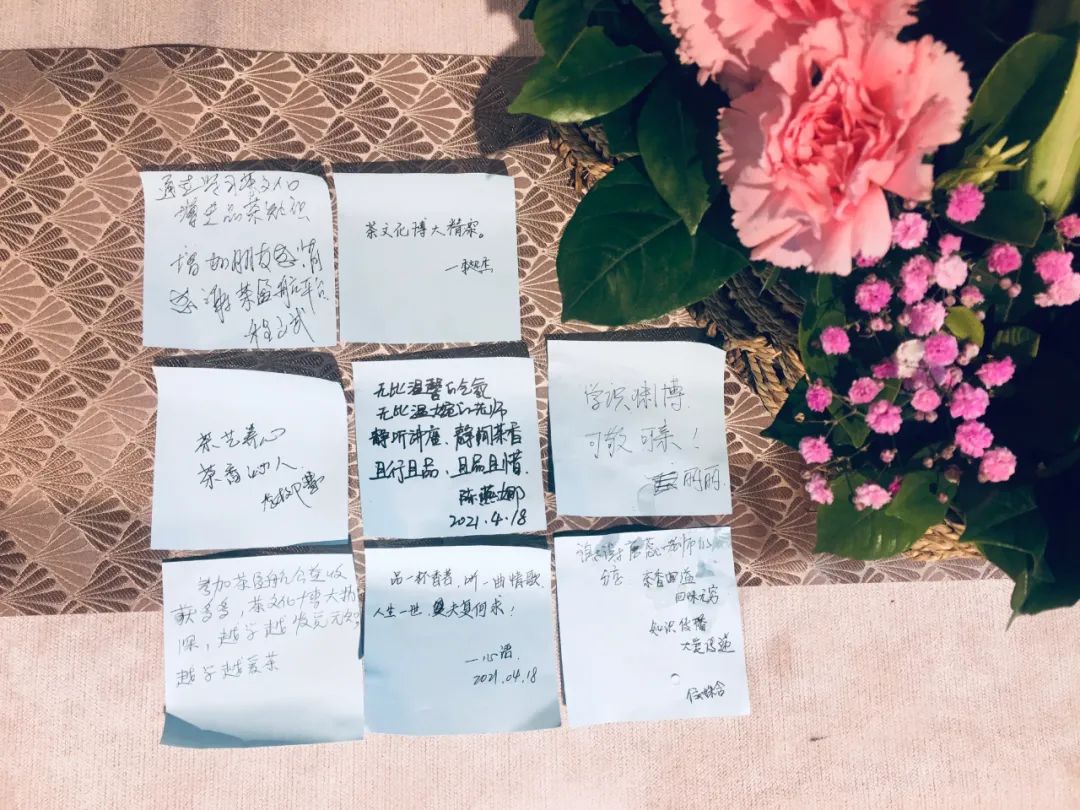 通过学习茶文化
增进品茶知识
增加朋友感情
感谢茶医航平台
茶文化博大精深。
茶艺养心
茶香醉人
无比温馨的气氛
无比温婉的老师
静听讲座、静闻茶香
且行且品、且品且惜.
陈燕娜
2021.4.18
学识渊博
可敬可亲！
丽丽
参加茶医航公益收
获多多，茶文化博大精
深，越学越发觉无知，
越学越爱茶
品一杯香茗，听一曲情歌
人生一世，夫复何求！
一心语.
2021.04.18
谢谢 老师的
茶香四溢
回味无穷
知识传播
大爱传递